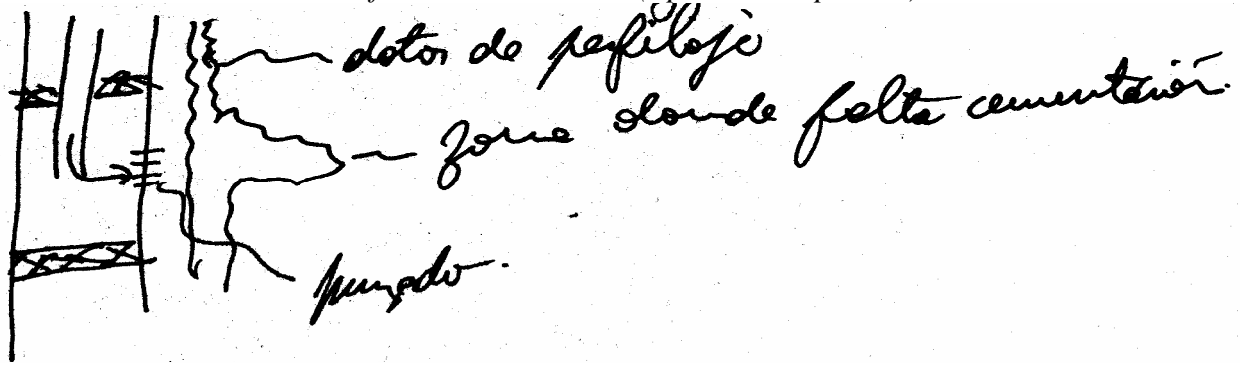 datos de perfilaje
zona donde falta cementación.
punzado.